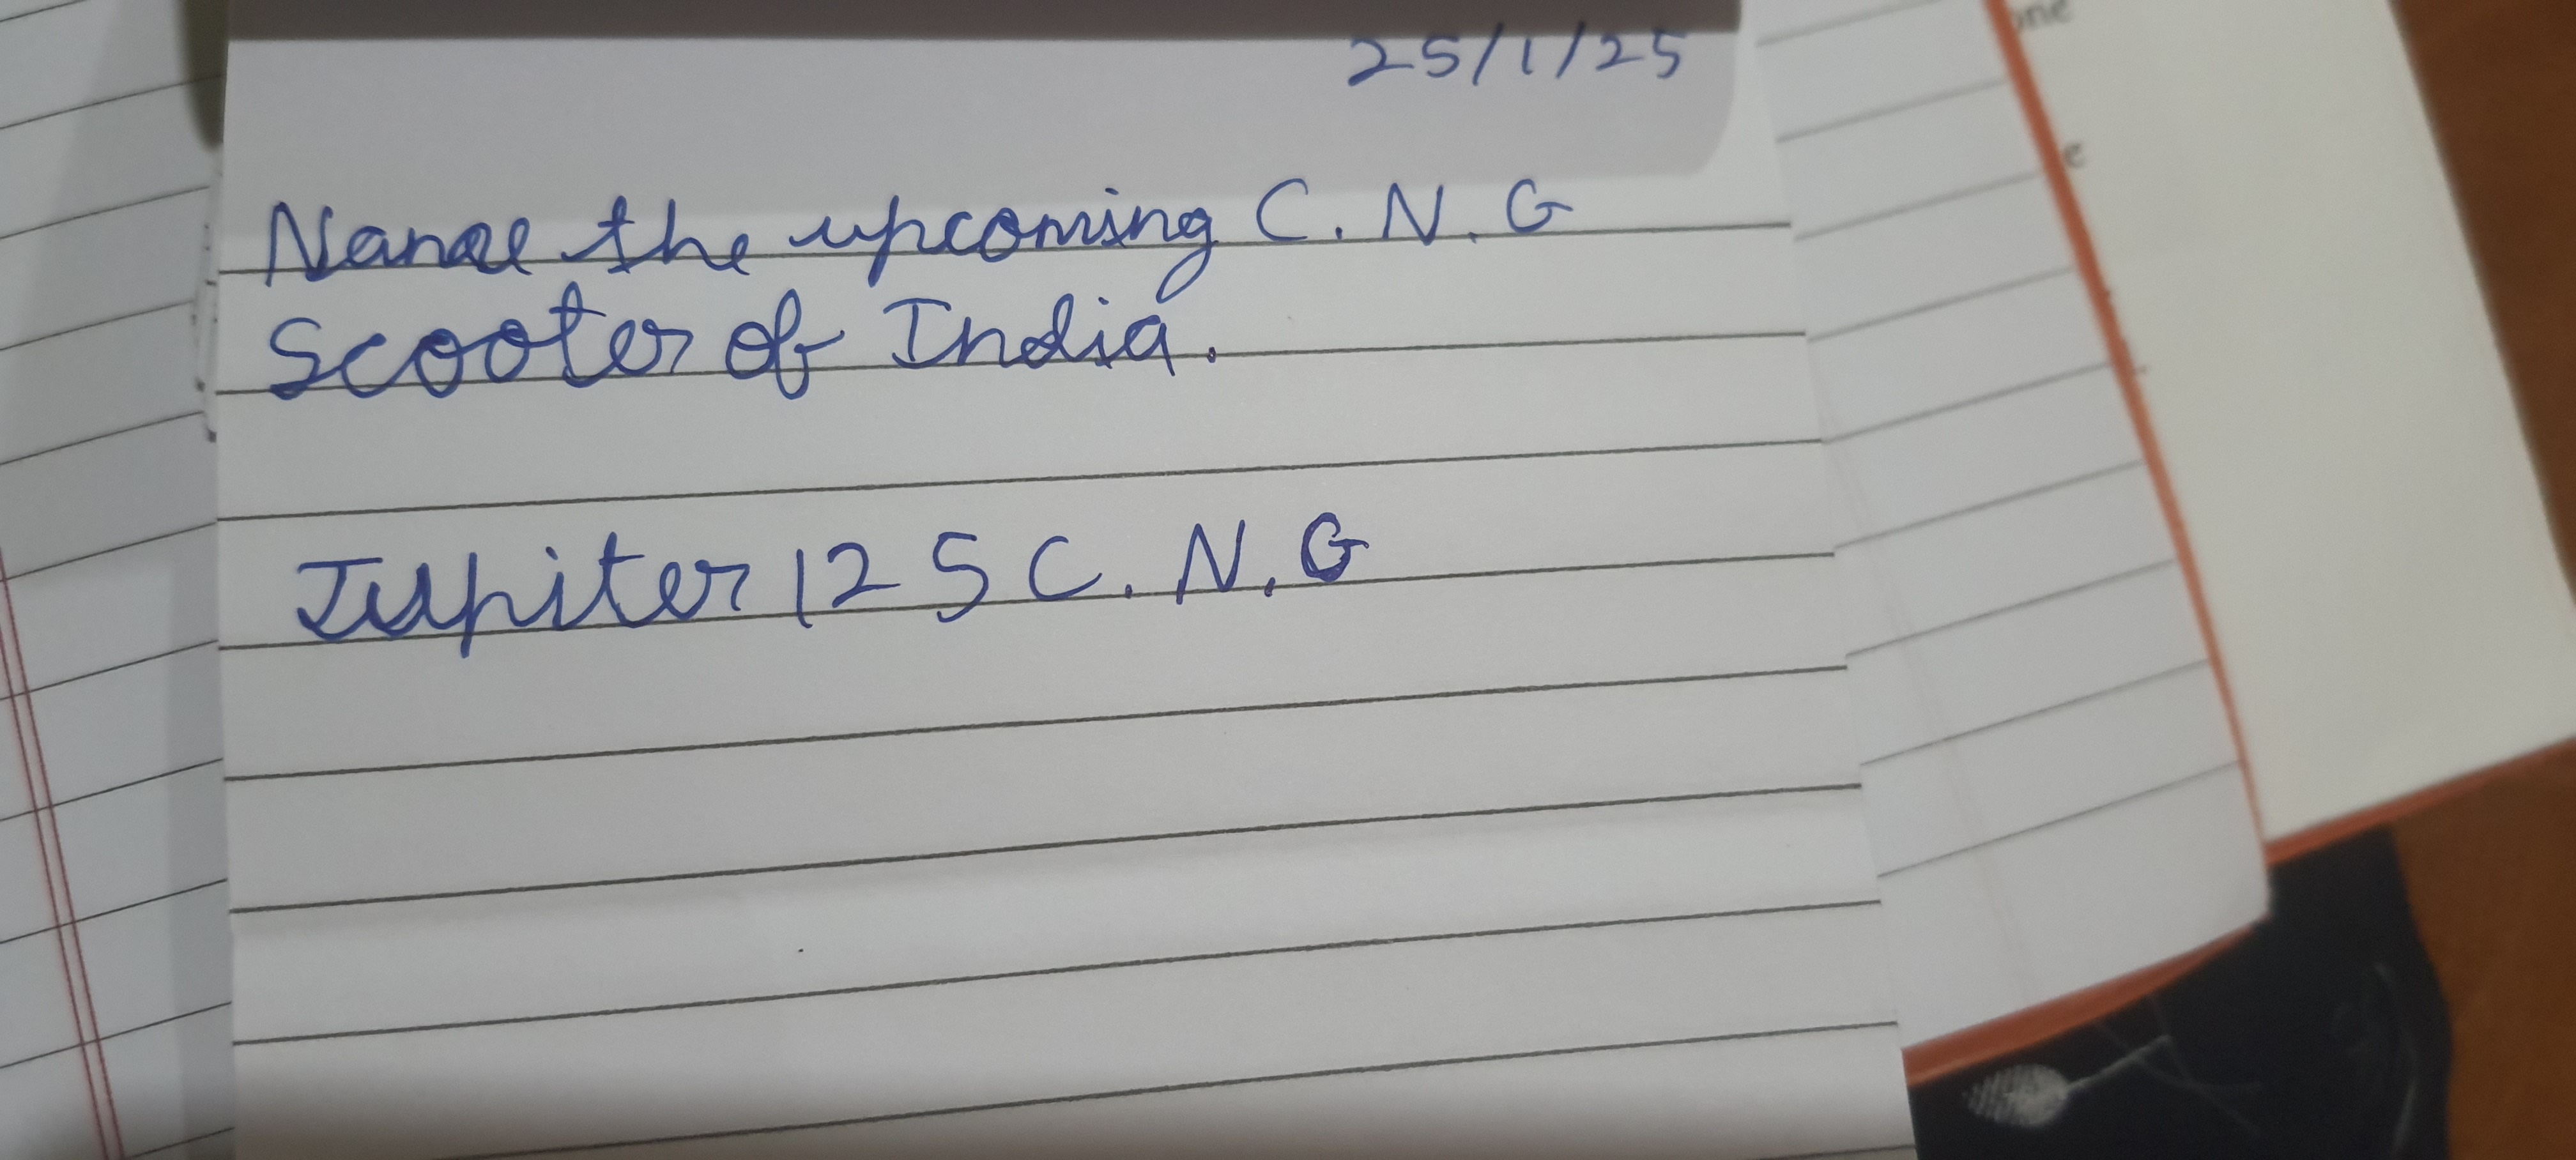 one
e
25/1/25
Name the upcoming C.N.G
Scooter of India.
Jupiter 125 C.N.G